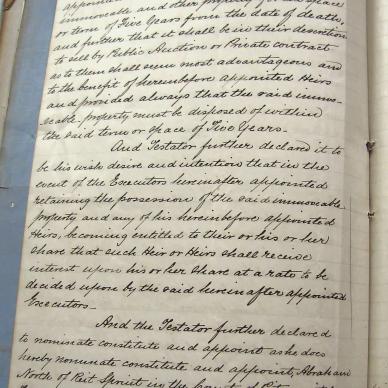 appointed
immoveable and other property for the space
or term of Five Years from the date of death,
and further that it shall be in their discretion
to sell by Public Auction or Private contract
as to them shall seem most advantageous and
to the benefit of hereinbefore appointed Heirs
and provided always that the said immo-
-eable property must be disposed of within
the said term or space of Five Years.
And Testator further declared it to
be his wish desire and intention that in the
event of the Executors hereinafter appointed
retaining the possession of the said immoveable
property and any of his hereinbefore appointed
Heirs, becoming entitled to their or his or her
share that such Heir or Heirs shall receive
interest upon his or her share at a rate to be
decided upon by the said hereinafter appointed
Executors.
And the Testator further declared
to nominate constitute and appoint as he does
hereby nominate constitute and appoint, Abraham
North of Riet Spruit in the